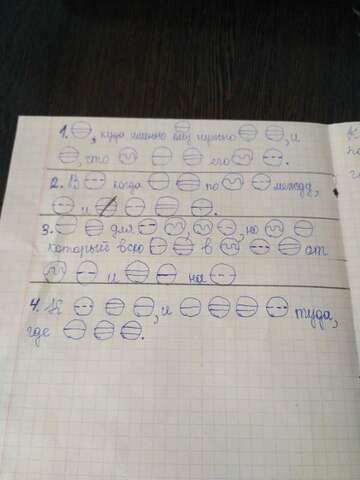 1. , куда именно ему нужно , и
, что его .
2. В когда по между,
и .
3. для , , но
который всю в от
и на
4. Я , и туда,
где .